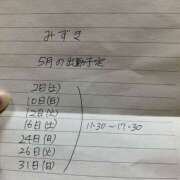 みずき
5月の出勤予定
2日(土)
10日(日)
12日(火)
16日(土)
24日(日)
26日(火)
31日(日)
11:30〜17:30